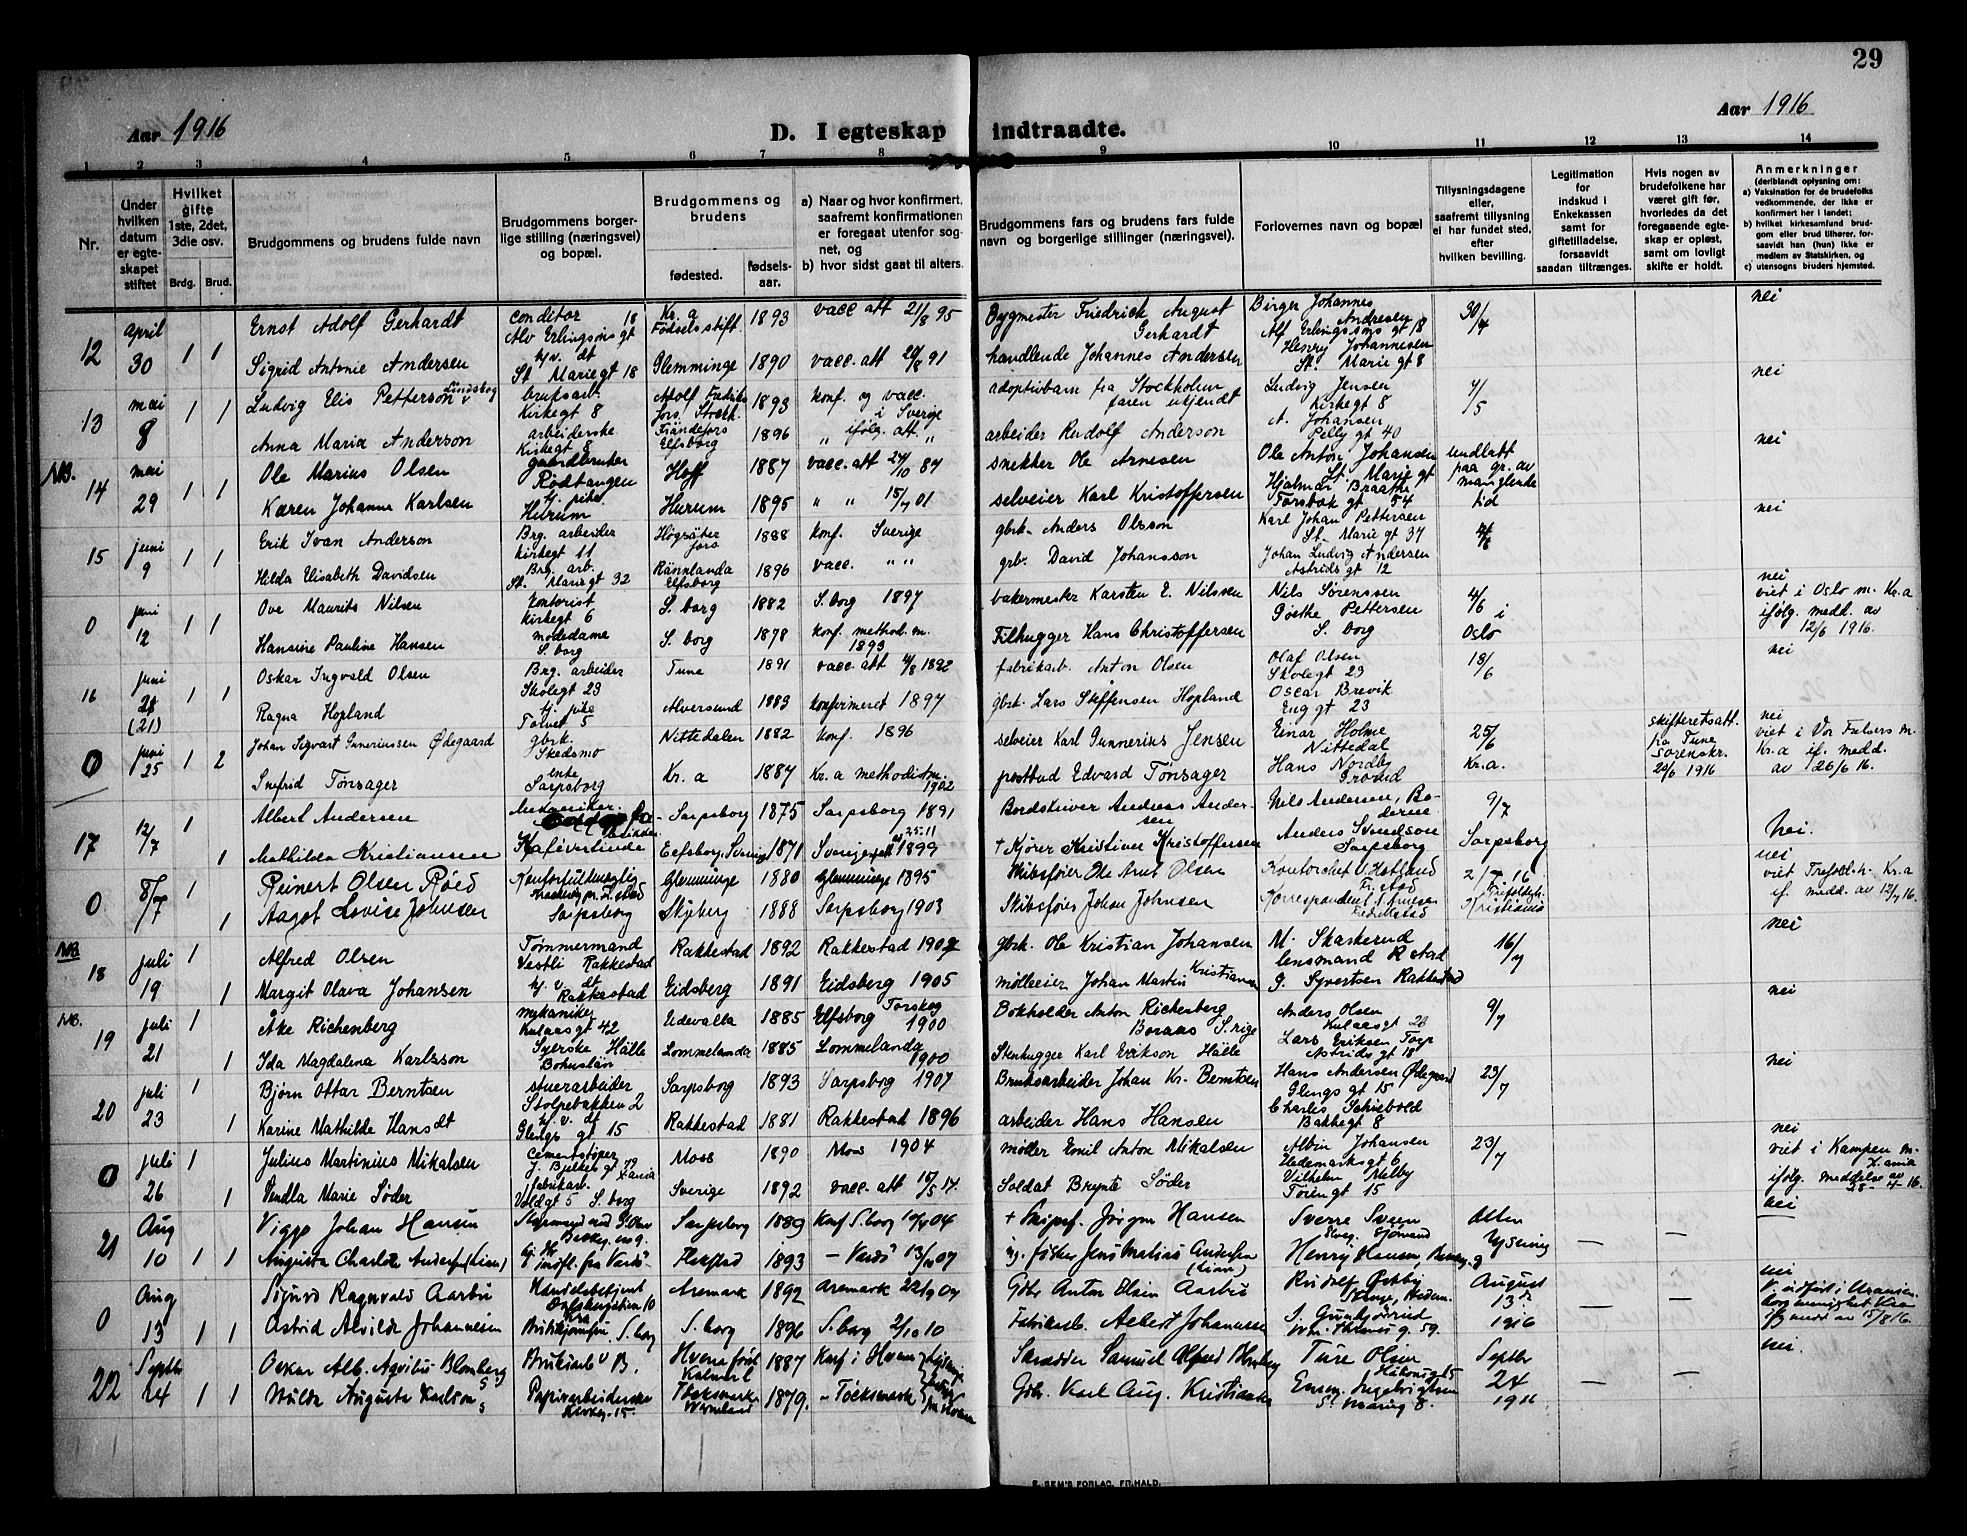 29
Aar 1916
D. I egteskap indtraadte.
Aar 1916
1 2 3 4 5 6 7 8 9 10 11 12 13 14
Nr.
Under hvilken datum er egteskapet stiftet
Hvilket gifte 1ste, 2det, 3die osv.
Brdg. Brud.
Brudgommens og brudens fulde navn
Brudgommens borgerlige stilling (næringsvei) og bopæl.
Brudgommens og brudens
fødested.
fødselsaar.
a) Naar og hvor konfirmert, saafremt konfirmationen er foregaat utenfor sognet, og
b) hvor sidst gaat til alters.
Brudgommens fars og brudens fars fulde navn og borgerlige stillinger (næringsvei).
Forlovernes navn og bopæl
Tillysningsdagene eller, saafremt tillysning ei har fundet sted, efter hvilken bevilling.
Legitimation for indskud i Enkekassen samt for giftetilladelse, forsaavidt saadan tiltrænges.
Hvis nogen av brudefolkene har været gift før, hvorledes da det foregaaende egteskap er opløst, samt om lovligt skifte er holdt.
Anmerkninger
(deriblandt oplysning om:
a) Vaksination for de brudefolks vedkommende, der ikke er konfirmert her i landet;
b) hvilket kirkesamfund brudgom eller brud tilhører, forsaavidt han (hun) ikke er medlem av Statskirken, og
c) utensogns bruders hjemsted.
12 april 30 1 1
Ernst Adolf Gerhardt conditor Alv Erlingsøns gt 18 Kr. a Fødselsstift. 1893 vacc att 21/8 95 Bygmester Friedrick August Gerhardt Birger Johannes Andresen Alf Erlingsøns gt 18 30/4 nei
Sigrid Antonie Andersen hj.v. dt St Mariegt 18 Glemminge 1890 vacc. att 20/8 91 handlende Johannes Andersen Henry Johannesen St. Marie gt 8
13 mai 8 1 1
Ludvig Elis Petterson Lindskog bruksarb. Kirkegt 8 Adolf Fredriks fors. Stockh. 1893 konf. og vacc. i Sverige adoptivbarn fra Stockholm faren ukjendt Ludvig Jensen Kirkegt 8 7/5 nei
Anna Maria Anderson arbeiderske Kirkegt 8 Frändefors Elfsborg 1896 " ifølg. att. " arbeider Rudolf Anderson A. Johansen Pelly gt 40
NB. 14 mai 29 1 1
Ole Marius Olsen gaardbruker Rødtangen Hoff 1887 vacc. att 24/10 87 snekker Ole Arnesen Ole Anton Johansen St. Marie gt undlatt paa gr. av manglende tid nei
Karen Johanne Karlsen hj. pike Hurum Hurum 1895 " " 15/7 01 selveier Karl Kristoffersen Hjalmar Braathe Torsbæk gt 54
15 juni 9 1 1
Erik Ivan Anderson Brg. arbeider Kirkegt 11 Högsäter fors 1888 konf. Sverige gbrk. Anders Olsson Karl Johan Pettersen St. Marie gt 37 4/6 nei
Hilda Elisabeth Davidsen Brg. arb. St. Marie gt 32 Rännlanda Elfsborg 1896 vacc. " " grb. David Johansson Johan Ludvig Andersen Astrids gt 12
0 juni 12 1 1
Ove Mauritz Nilsen Kontorist Kirkegt 6 S. borg 1882 S. borg 1897 bakermester Karsten E. Nilssen Nils Sørenssen 4/6 i Oslo nei viet i Oslo m. Kr.a ifølg. medd. av 12/6 1916.
Hansine Pauline Hansen modedame S. borg S. borg 1878 konf. method. m. 1893 Filhugger Hans Christoffersen Goethe Pettersen S. borg
16 juni 21 (21) 1 1
Oskar Ingvald Olsen Brg. arbeider Skolegt 23 Tune 1891 vacc. att 4/8 1892 fabrikarb. Anton Olsen Olaf Olsen Skolegt 23 18/6 nei
Ragna Hopland hj. pike Torvet 5 Alversund 1883 konfirmeret 1897 gbrk. Lars Steffensen Hopland Oscar Brevik Enggt 23
0 juni 25 1 2
Johan Sigvart Gunneriussen Ødegaard gbrk. Skedsmo Nittedalen 1882 konf. 1896 selveier Karl Gunnerius Jensen Einar Holme Nittedal 25/6 Kr.a. skifteretsatt. fra Tune sorenskr. 24/6 1916 nei viet i Vor Frelsers m. Kr.a if. medd. av 26/6 16.
Snefrid Tønsager enke Sarpsborg Kr. a 1887 Kr. a methodistm. 1902 postbud Edvard Tønsager Hans Nordby
17 12/7 1 1
Albert Andersen Mekaniker Sarpsborg 1875 Sarpsborg 1891 Bordskriver Andreas Andersen Nils Andersen, Boderne 9/7 Sarpsborg nei.
Mathilda Kristiansen Kafévertinde Elfsborg, Sverige 1871 Sverige 1899 + Kjører Kristian Kristoffersen Anders Svendson Sarpsborg
0 8/7 1 1
Reinert Olsen Røed Glemminge 1880 Glemminge 1895 Skibsfører Ole Arnt Olsen 2/7 16 Kristiania nei viet Trefold.k. Kr.a if. medd. av 12/7 16.
Aagot Lovise Johnsen Sarpsborg Skjberg 1888 Sarpsborg 1903 Skibsfører Johan Johnsen Korrespondent
NB 18 juli 19 1 1
Alfred Olsen Tømmermand Vestli Rakkestad Rakkestad 1892 Rakkestad 1907 gbrk. Ole Kristian Johansen M. Skaskerud lensmand R stad 16/7 nei
Margit Olava Johansen hj. v. dt Rakkestad Eidsberg 1891 Eidsberg 1905 mølleeier Johan Martin Kristiansen G. Syvertsen Rakkestad
NB. 19 juli 21 1 1
Åke Richenberg mekaniker Kulaasgt 42 Udevalla 1885 Elfsborg Torskog 1900 Bokholder Anton Richenberg Boraas S.rige Anders Olsen Kulaasgt 9/7 nei
Ida Magdalena Karlsson Sverske Hälle Bohuslän Lommelanda 1885 Lommelanda 1900 Stenhugger Karl Erikson Hälle Lars Eriksen Torp Astrids gt 18
20 juli 23 1 1
Bjørn Ottar Berntsen stuerarbeider Stolpebakken 2 Sarpsborg 1893 Sarpsborg 1907 Bruksarbeider Johan Kr. Berntsen Hans Andersen Ødegaard Glengs gt 15 23/7 nei
Karine Mathilde Hansdt hj. v. dt Glengs gt 15 Rakkestad 1881 Rakkestad 1896 arbeider Hans Hansen Charles Schiebold Bakkegt 8
0 juli 26 1 1
Julius Martinius Mikalsen Cementstøper J. Bjelkes gt 79 X.ania Moss 1890 Moss 1904 møller Emil Anton Mikalsen Albin Johansen Hedemarksgt 6 23/7 nei viet i Kampen m. X.ania ifølg. meddelse av 28-7-16.
Vendla Marie Söder fabrikarb. Voldgt 5 S. borg Sverige 1892 vacc. att 15/5 14. Soldat Brynte Söder Vilhelm Melby Tøiengt 15
21 Aug 10 1 1
Viggo Johan Hansen Sarpsborg 1889 Konf S.borg 10/4 04 + Skipsf. Jørgen Hansen Sverre Sveen Alten Lysning — — nei
Augusta Charlotte Andersen (Lian) 1893 — Vardö 13/10 07 Jens Matias Andersen (Lian) Henry Hansen
0 Aug 13 1 1
Sigurd Ragnvald Aarbu Handelsbetjent Aremark 1892 Aremark 22/9 07 Gbr Anton Elsin Aarbu Rudolf Østby August 13de 1916 — — nei
Astrid Alvilde Johannesen S. borg S. borg 1896 S. borg 2/10 10 Fabrikarb. Albert Johannessen
22 Septbr 24 1 1
Oskar Alb. Agvilu Blomberg Bruksarb B. Kalmarl 1887 Konf i Skrædder Samuel Alfred Blomberg Ture Olsen Septbr 24 1916 — — nei.
Hulda Auguste Karlson Papirarbeiderske Kirkeg. 15. Töcksmark Wermland 1879. — Töcksmark Gbr. Karl Aug. Kristian
E. SEM'S FORLAG, FR.HALD.